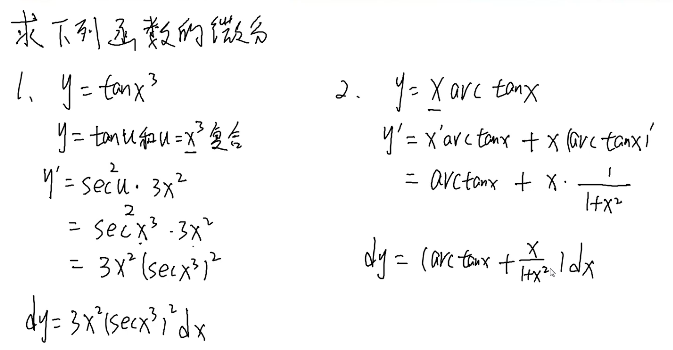 求下列函数的微分
1、 y = tanx³
y = tanu和u = x³复合
y' = sec²u · 3x²
= sec²x³ · 3x²
= 3x²(secx³)²
dy = 3x²(secx³)²dx
2. y = x arc tanx
y' = x'arctanx + x(arctanx)'
= arctanx + x · 1/(1+x²)
dy = (arctanx + x/(1+x²))dx